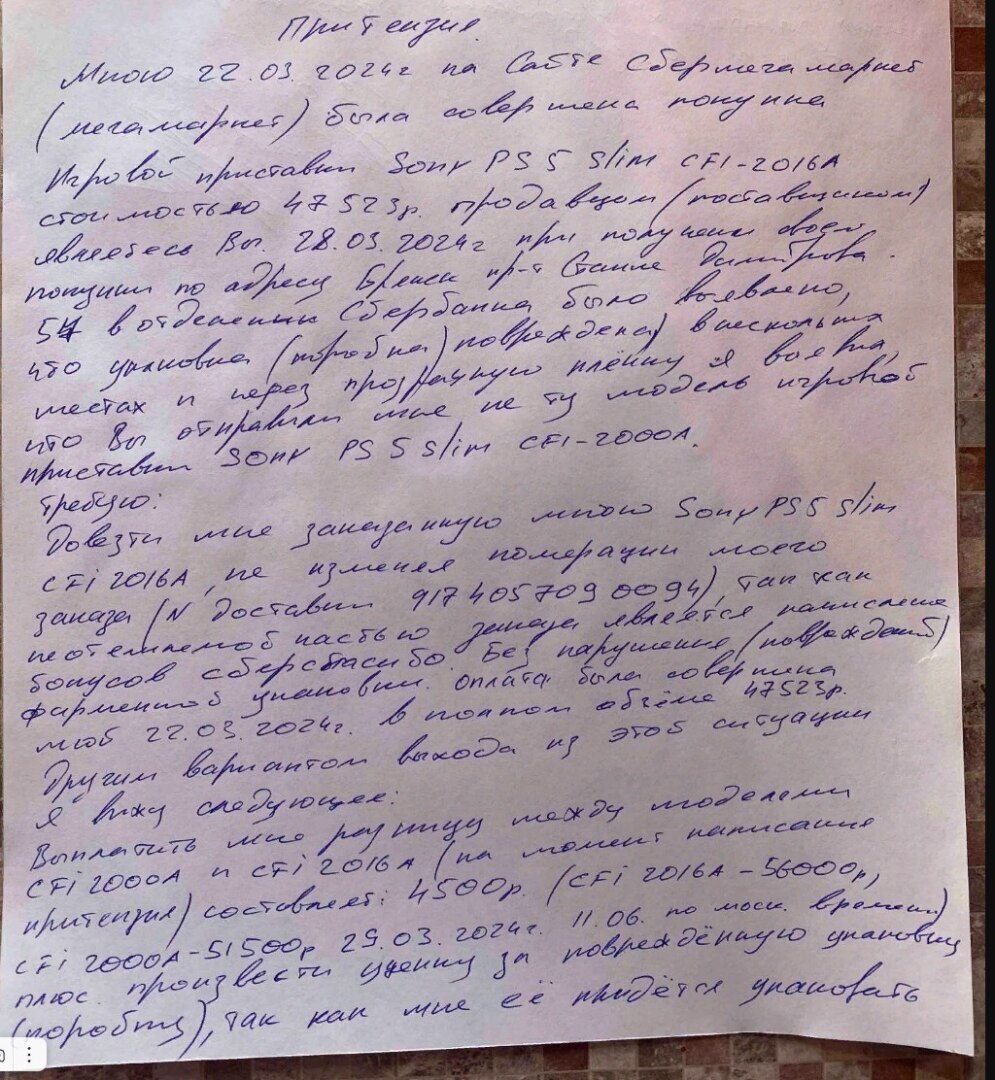 Притензия.
Мною 22.03.2024г на Сайте Сбермегамаркет
(мегамаркет) была совершена покупка
Игровой приставки Sony PS 5 Slim CFI-2016A
стоимостью 47523р. продавцом (поставщиком)
являетесь Вы. 28.03.2024г при получении своей
покупки по адресу Брянск пр-т Станке Димитрова.
54 в отделении Сбербанка было выявлено,
что упаковка (коробка) повреждена) в нескольких
местах и через прозрачную плёнку я выявил,
что Вы отправили мне не ту модель игровой
приставки Sony PS 5 Slim CFI-2000A.
Требую:
Довезти мне заказанную мною Sony PS5 Slim
CFi 2016A, не изменяя номерации моего
заказа (N доставки 9174057090094), так как
неотемлемой частью заказа является начисление
бонусов сберспасибо. Без нарушения (повреждений)
фирменной упаковки. оплата была совершина
мной 22.03.2024г. в полном объёме 47523р.
Другим вариантом выхода из этой ситуации
я вижу следующее:
Выплатить мне разницу между моделями
CFi 2000A и CFi 2016A (на момент написания
притензии) составляет: 4500р. (CFi 2016A - 56000р,
CFi 2000A-51500р 29.03.2024г. 11.06. по моск. времени)
плюс произвести уценку за повреждённую упаковку
(коробку), так как мне её придётся упаковать